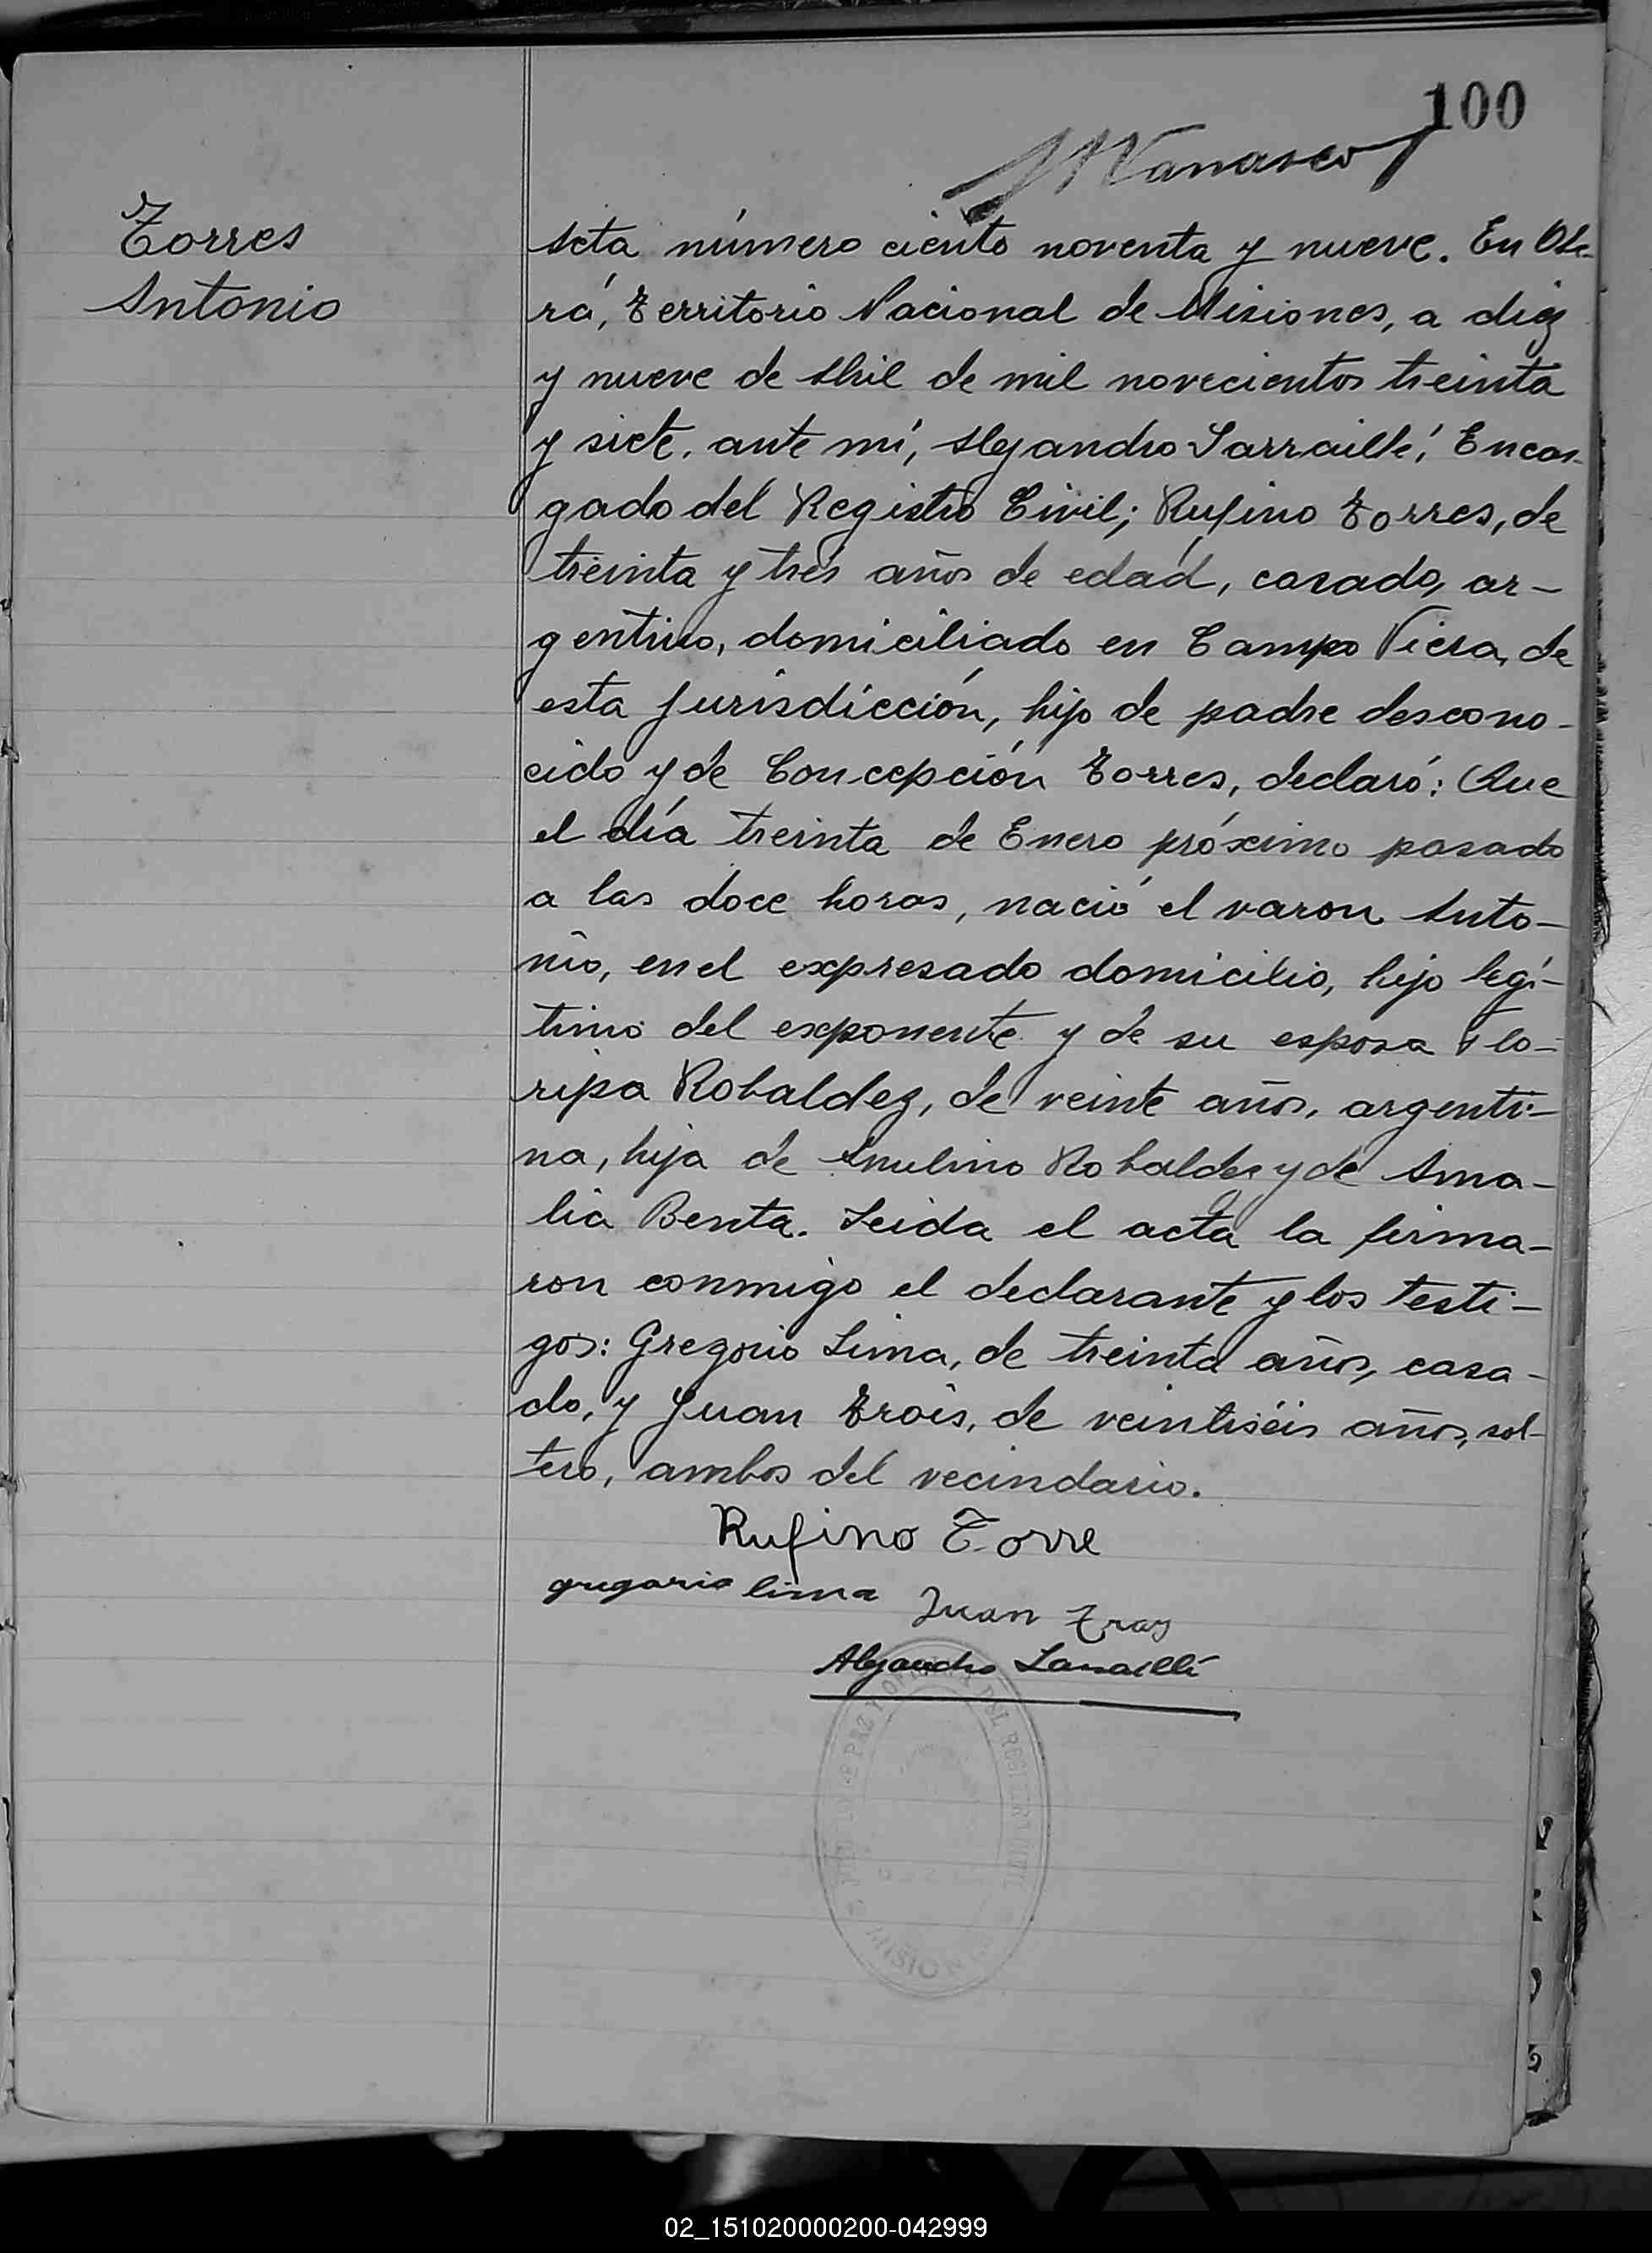 100
Torres
Antonio
Acta número ciento noventa y nueve. En Obe-
rá, Territorio Nacional de Misiones, a diez
y nueve de Abril de mil novecientos treinta
y siete. ante mí, Alejandro Larraillé, Encar-
gado del Registro Civil; Rufino Torres, de
treinta y tres años de edad, casado, ar-
gentino, domiciliado en Campo Viera, de
esta jurisdicción, hijo de padre descono-
cido y de Concepción Torres, declaró: Que
el día treinta de Enero próximo pasado
a las doce horas, nació el varon Anto-
nio, en el expresado domicilio, hijo legí-
timo del exponente y de su esposa Flo-
ripa Robaldez, de veinte años, argenti-
na, hija de Robaldez y de Ama-
lia Benta. Leida el acta la firma-
ron conmigo el declarante y los testi-
gos: Gregorio Lima, de treinta años, casa-
do, y Juan Trois, de veintiséis años, sol-
tero, ambos del vecindario.
Rufino Torre
gregorio lima
Juan
Alejandro Larraillé
PAZ Y DEL REGISTRO CIVIL
MISIONES
02_151020000200-042999